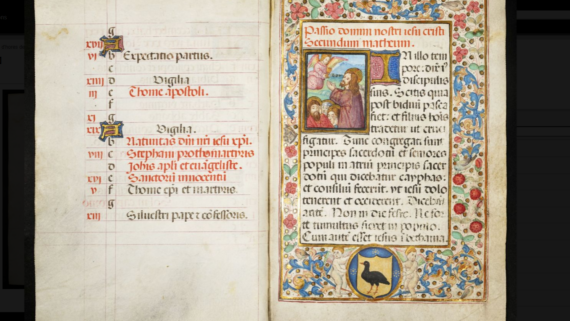 g
xvii A
vi b Expectatio partus.
c
xiiii d Vigilia
iii e Thome apostoli.
f
xi g
xix A Vigilia.
b Natiuitas dñi nri iesu xpi.
viii c Stephani prothomartyris
d Johis apli et euāgeliste.
xvi e Sanctorū innocentū
v f Thome epi et martyris.
g
xiii Siluestri pape et cōfessoris.
Passio domini nostri iesu cristi
Secundum matheum.
IN illo tem
pore: dixit
discipulis
suis. Scitis quia
post biduū pasca
fiet: et filius hois
tradetur ut cruci
figatur. Tunc congregati sunt
principes sacerdotū et seniores
populi in atriū principis sacer
dotū qui dicebatur cayphas:
et consiliū fecerūt. vt iesū dolo
tenerent et occiderent. Dicebāt
autē. Non in die festo. Ne for
te tumultus fieret in populo.
Cum autē esset iesus ī bethania.